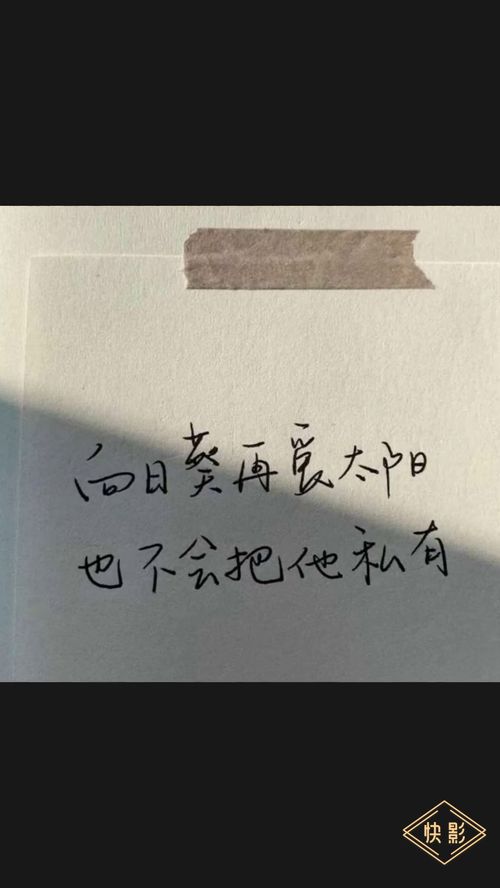 向日葵再爱太阳
也不会把他私有
快影